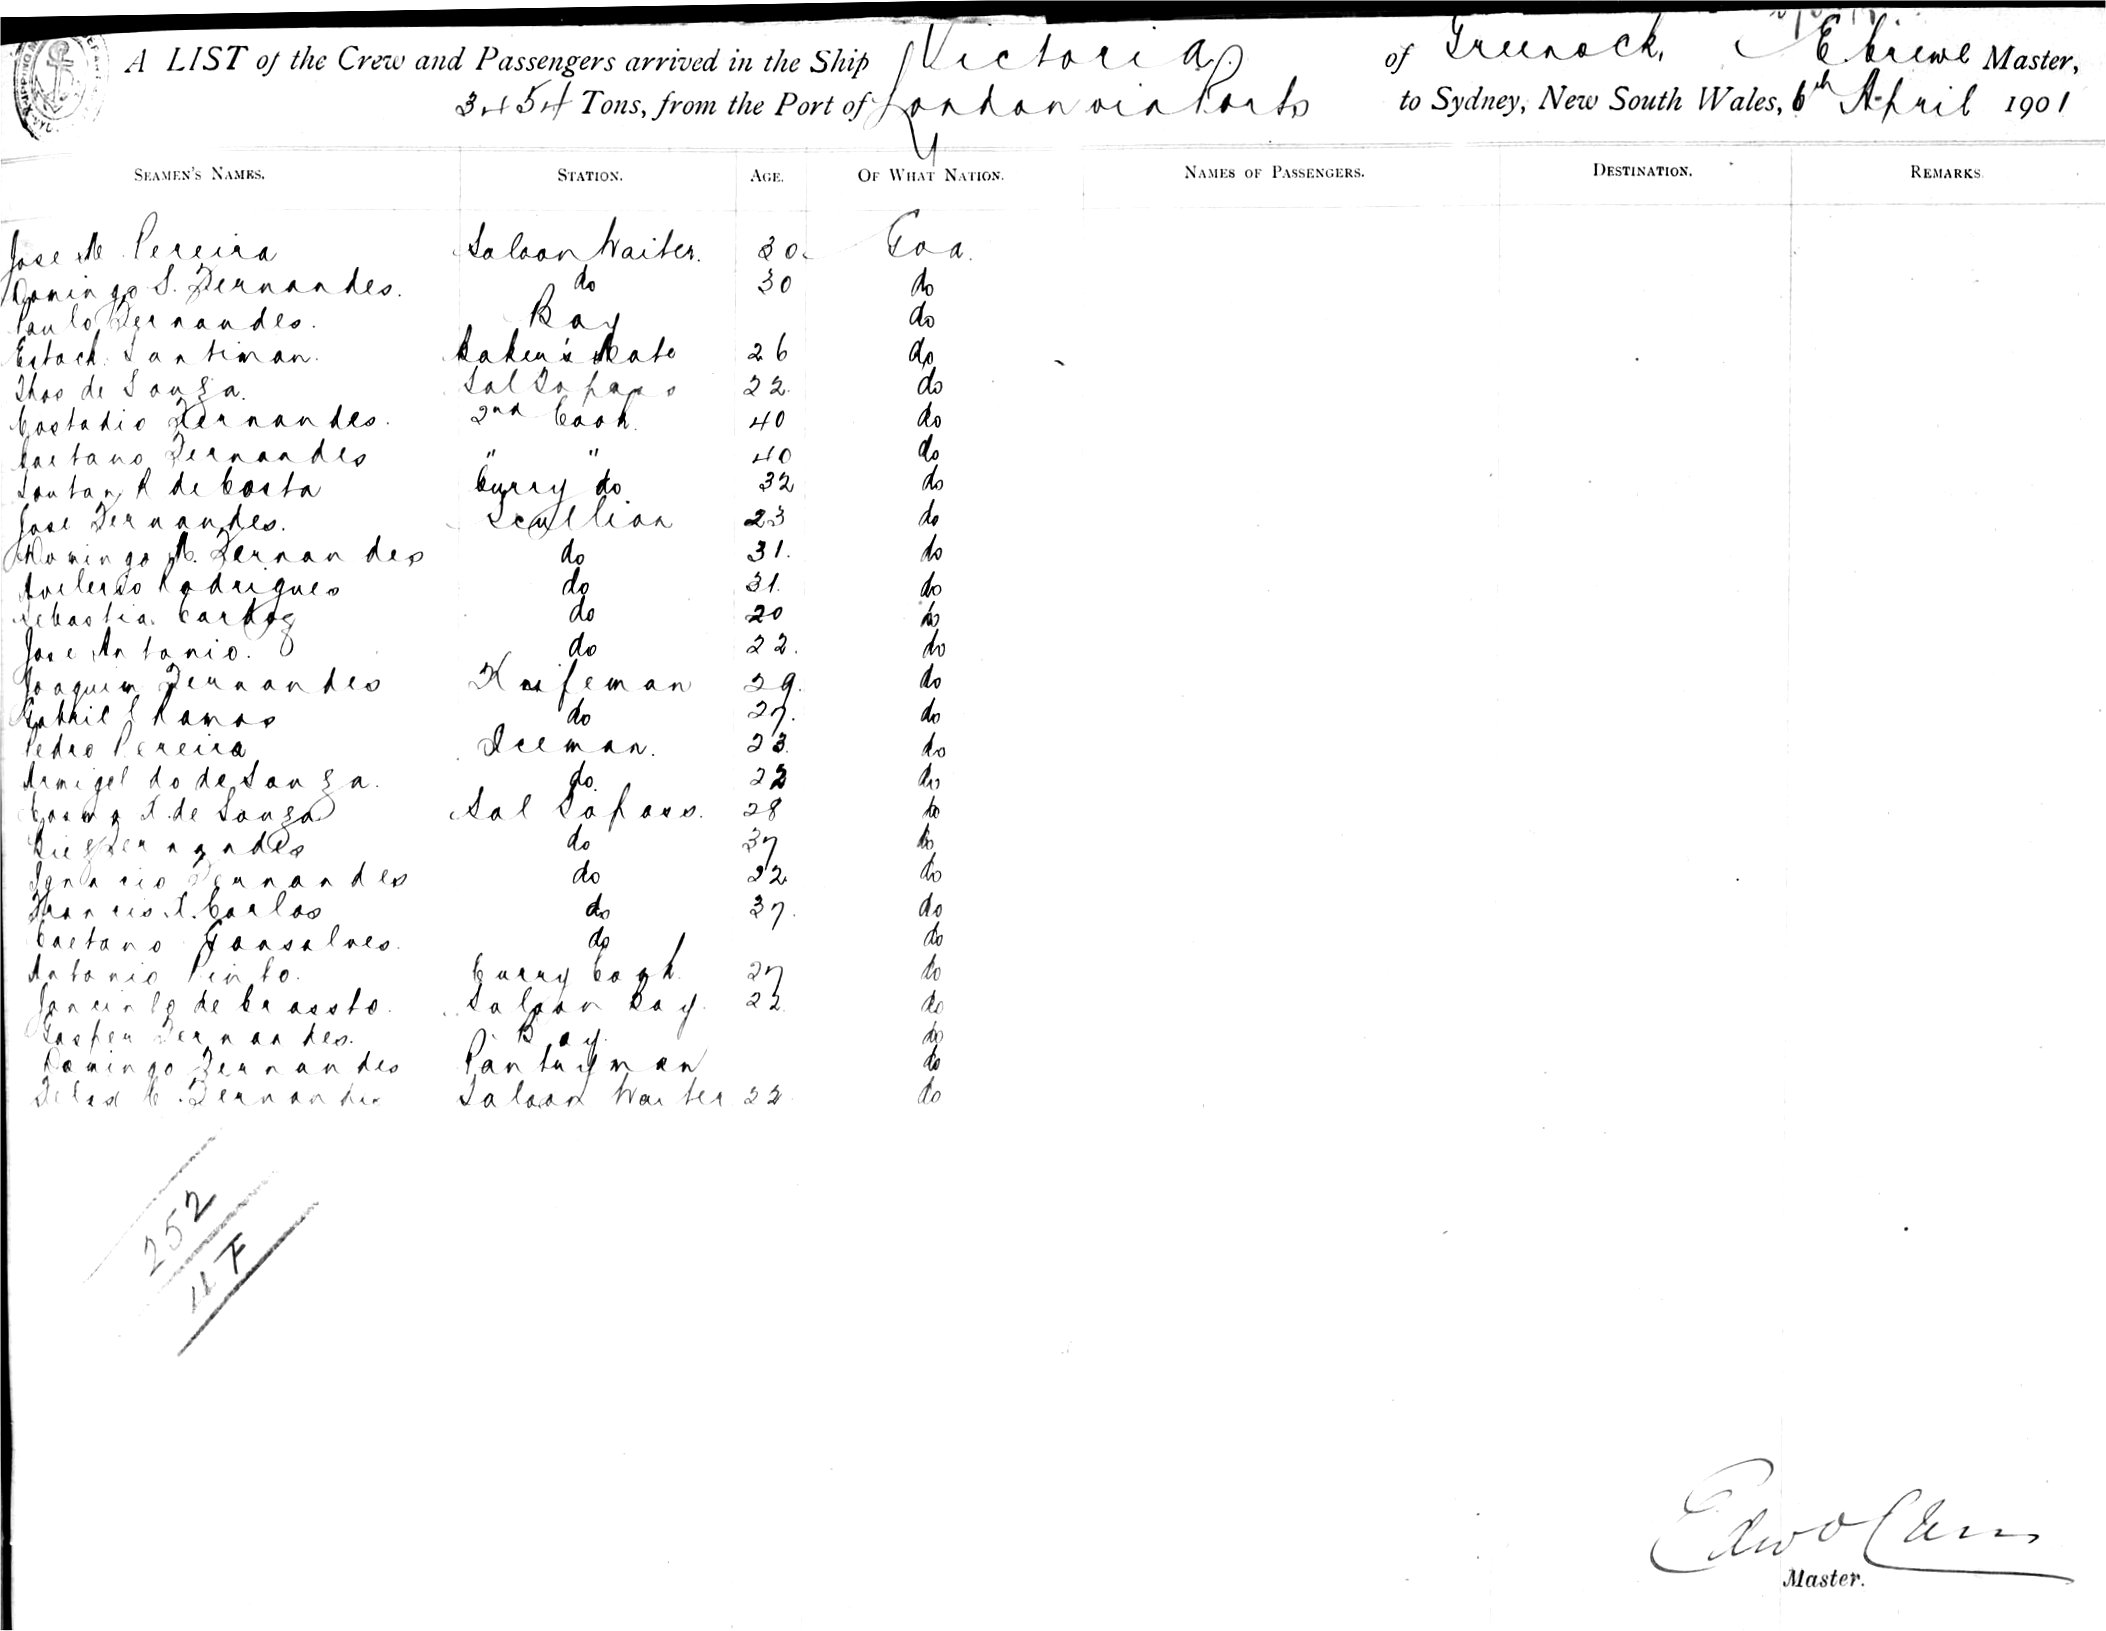 A LIST of the Crew and Passengers arrived in the Ship Victoria of Greenock, E Crewe Master,
3454 Tons, from the Port of London via Ports to Sydney, New South Wales, 6th April 1901
SEAMEN'S NAMES. STATION. AGE. OF WHAT NATION. NAMES OF PASSENGERS. DESTINATION. REMARKS
Jose M Pereira Saloon Waiter. 30. Goa.
Domingo S. Fernandes. do 30 do
Paulo Fernandes. Boy do
Estach. Santiman. Baker's Mate 26 do
Thos de Souza. Sal Topass 22. do
Costadio Fernandes. 2nd Cook. 40 do
Caetano Fernandes " " 40 do
R de Costa Curry do 32 do
Jose Fernandes. Scullion 23 do
Domingo M. Fernandes do 31. do
Rodrigues do 31. do
Sebastia. Cardoz do 20 do
Jose Antonio. do 22. do
Joaquim Fernandes Knifeman 29. do
Gabriel Ramos do 27. do
Pedro Pereira Iceman. 23. do
Armigel do de Souza. do. 22 do
Cosmo X. de Souza Sal Topass. 28 do
Fernandes do 37 do
Ignacio Fernandes do 22 do
Francis X. Carlos do 37. do
Caetano Gonsalves. do do
Antonio Pinto. Curry Cook. 27 do
Jancinto de Crassto. Saloon Boy. 22. do
Gasper Fernandes. Boy. do
Domingo Fernandes Pantryman do
C. Fernandes Saloon Waiter 22. do
252
Master.